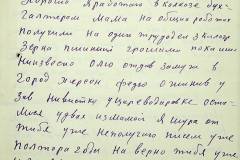 хорошо я работаю в колхозе бух-
галтером мама на общих работах
получили на один трудодень 2 кило
зерна пшиници грошими пока ище
ниизвесно Олю отдав замуж в
город Херсон Федю оженив у
зяв нивистку у Цареводаровке оста-
лися удвох измамой я Шура от
тибя уже неполучаю писем уже
полтора годы на верно тибя уже